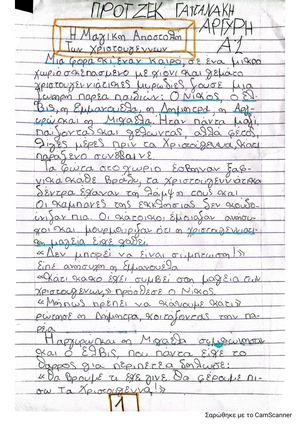 ΠΡΟΤΖΕΚ ΓΑΙΤΑΝΑΚΗ
ΑΡΓΥΡΗ
Η Μαγική Αποστολή
των Χριστουγέννων
Α1
Μια φορά κι έναν καιρό, σε ένα μικρό
χωριό σκεπασμένο με χιόνι και γεμάτο
χριστουγεννιάτικες μυρωδιές ζούσε μια
παρέα παιδιών: Ο Νίκος, ο Ελ-
Βις, η Εμμανουέλα, η Δήμητρα, η Αρ-
γυρώ και η Μιχαέλα. Ήταν πάντα μαζί
παίζοντας και γελώντας, αλλά φέτος,
λίγες μέρες πριν τα Χριστούγεννα, κάτι
παράξενο συνέβαινε.
Τα φώτα στο χωριό έσβηναν ξαφ-
νικά κάθε βράδυ, τα χριστουγεννιάτικα
δέντρα έχαναν τη λάμψη τους και
Οι καμπάνες της εκκλησίας δεν ακού-
γονταν πια. Οι κάτοικοι έμοιαζαν ανήσυ-
χοι και μουρμούριζαν ότι η χριστουγεννιάτι-
κη μαγεία είχε χαθεί.
«Δεν μπορεί να είναι σύμπτωση!»
Είπε ανήσυχη η Εμμανουέλα
«Κάτι κακό έχει συμβεί στη μαγεία των
Χριστουγέννων» πρόσθεσε ο Νίκος.
«Μήπως πρέπει να κάνουμε κάτι;»
ρώτησε η Δήμητρα, κοιτάζοντας την πα-
ρέα
Η Αργυρώ και η Μιχαέλα συμφώνησαν
και ο Ελβις, που πάντα είχε το
θάρρος για περιπέτεια δήλωσε:
«Θα βρούμε τι έχει γίνει. Θα φέρουμε πί-
σω τα Χριστούγεννα!»
1
Σαρώθηκε με το CamScanner